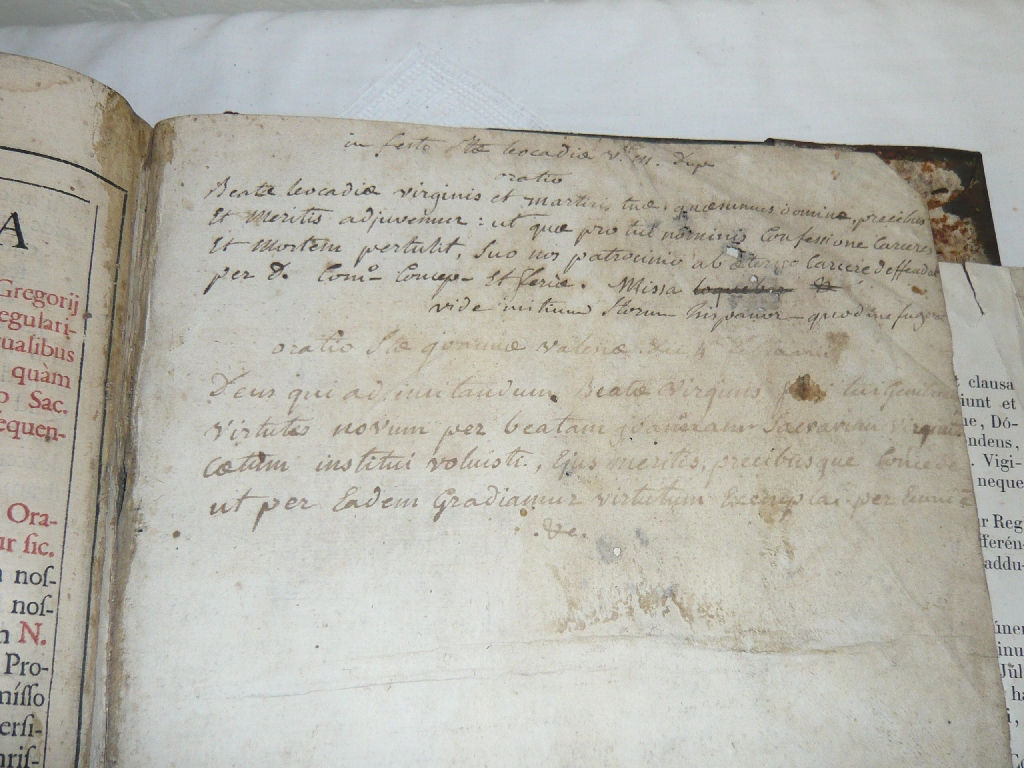 A
Gregorij
regulari-
qualibus
quàm
Sac.
sequen-
Ora-
ur sic.
nos-
nos-
N.
Pro-
misso
ersi-
hris-
in festo Stæ leocadiæ V. M.
oratio
Beatæ leocadiæ virginis et martiris tuæ, quæsumus domine, precibus
Et Meritis adjuvemur: ut quæ pro tui nominis Confessione Carcerem
Et Mortem pertulit, Suo nos patrocinio ab æterno Carcere deffendat
per D. Com° Concep- Et feriæ. Missa loquebar
vide initium Storum hispanor- quod
oratio Stæ
Deus qui ad imitandum Beatæ Virginis tui Genitricis
Virtutes novum per beatam Joannam Sacrarum Virginum
Cœtum institui voluisti, Ejus meritis, precibusque Concede
ut per Eadem Gradiamur virtutum Exempla. per Eumd
Ve.
clausa
iunt et
ne, Dó-
ndens,
Vigi-
neque
r Reg
fferén-
addu-